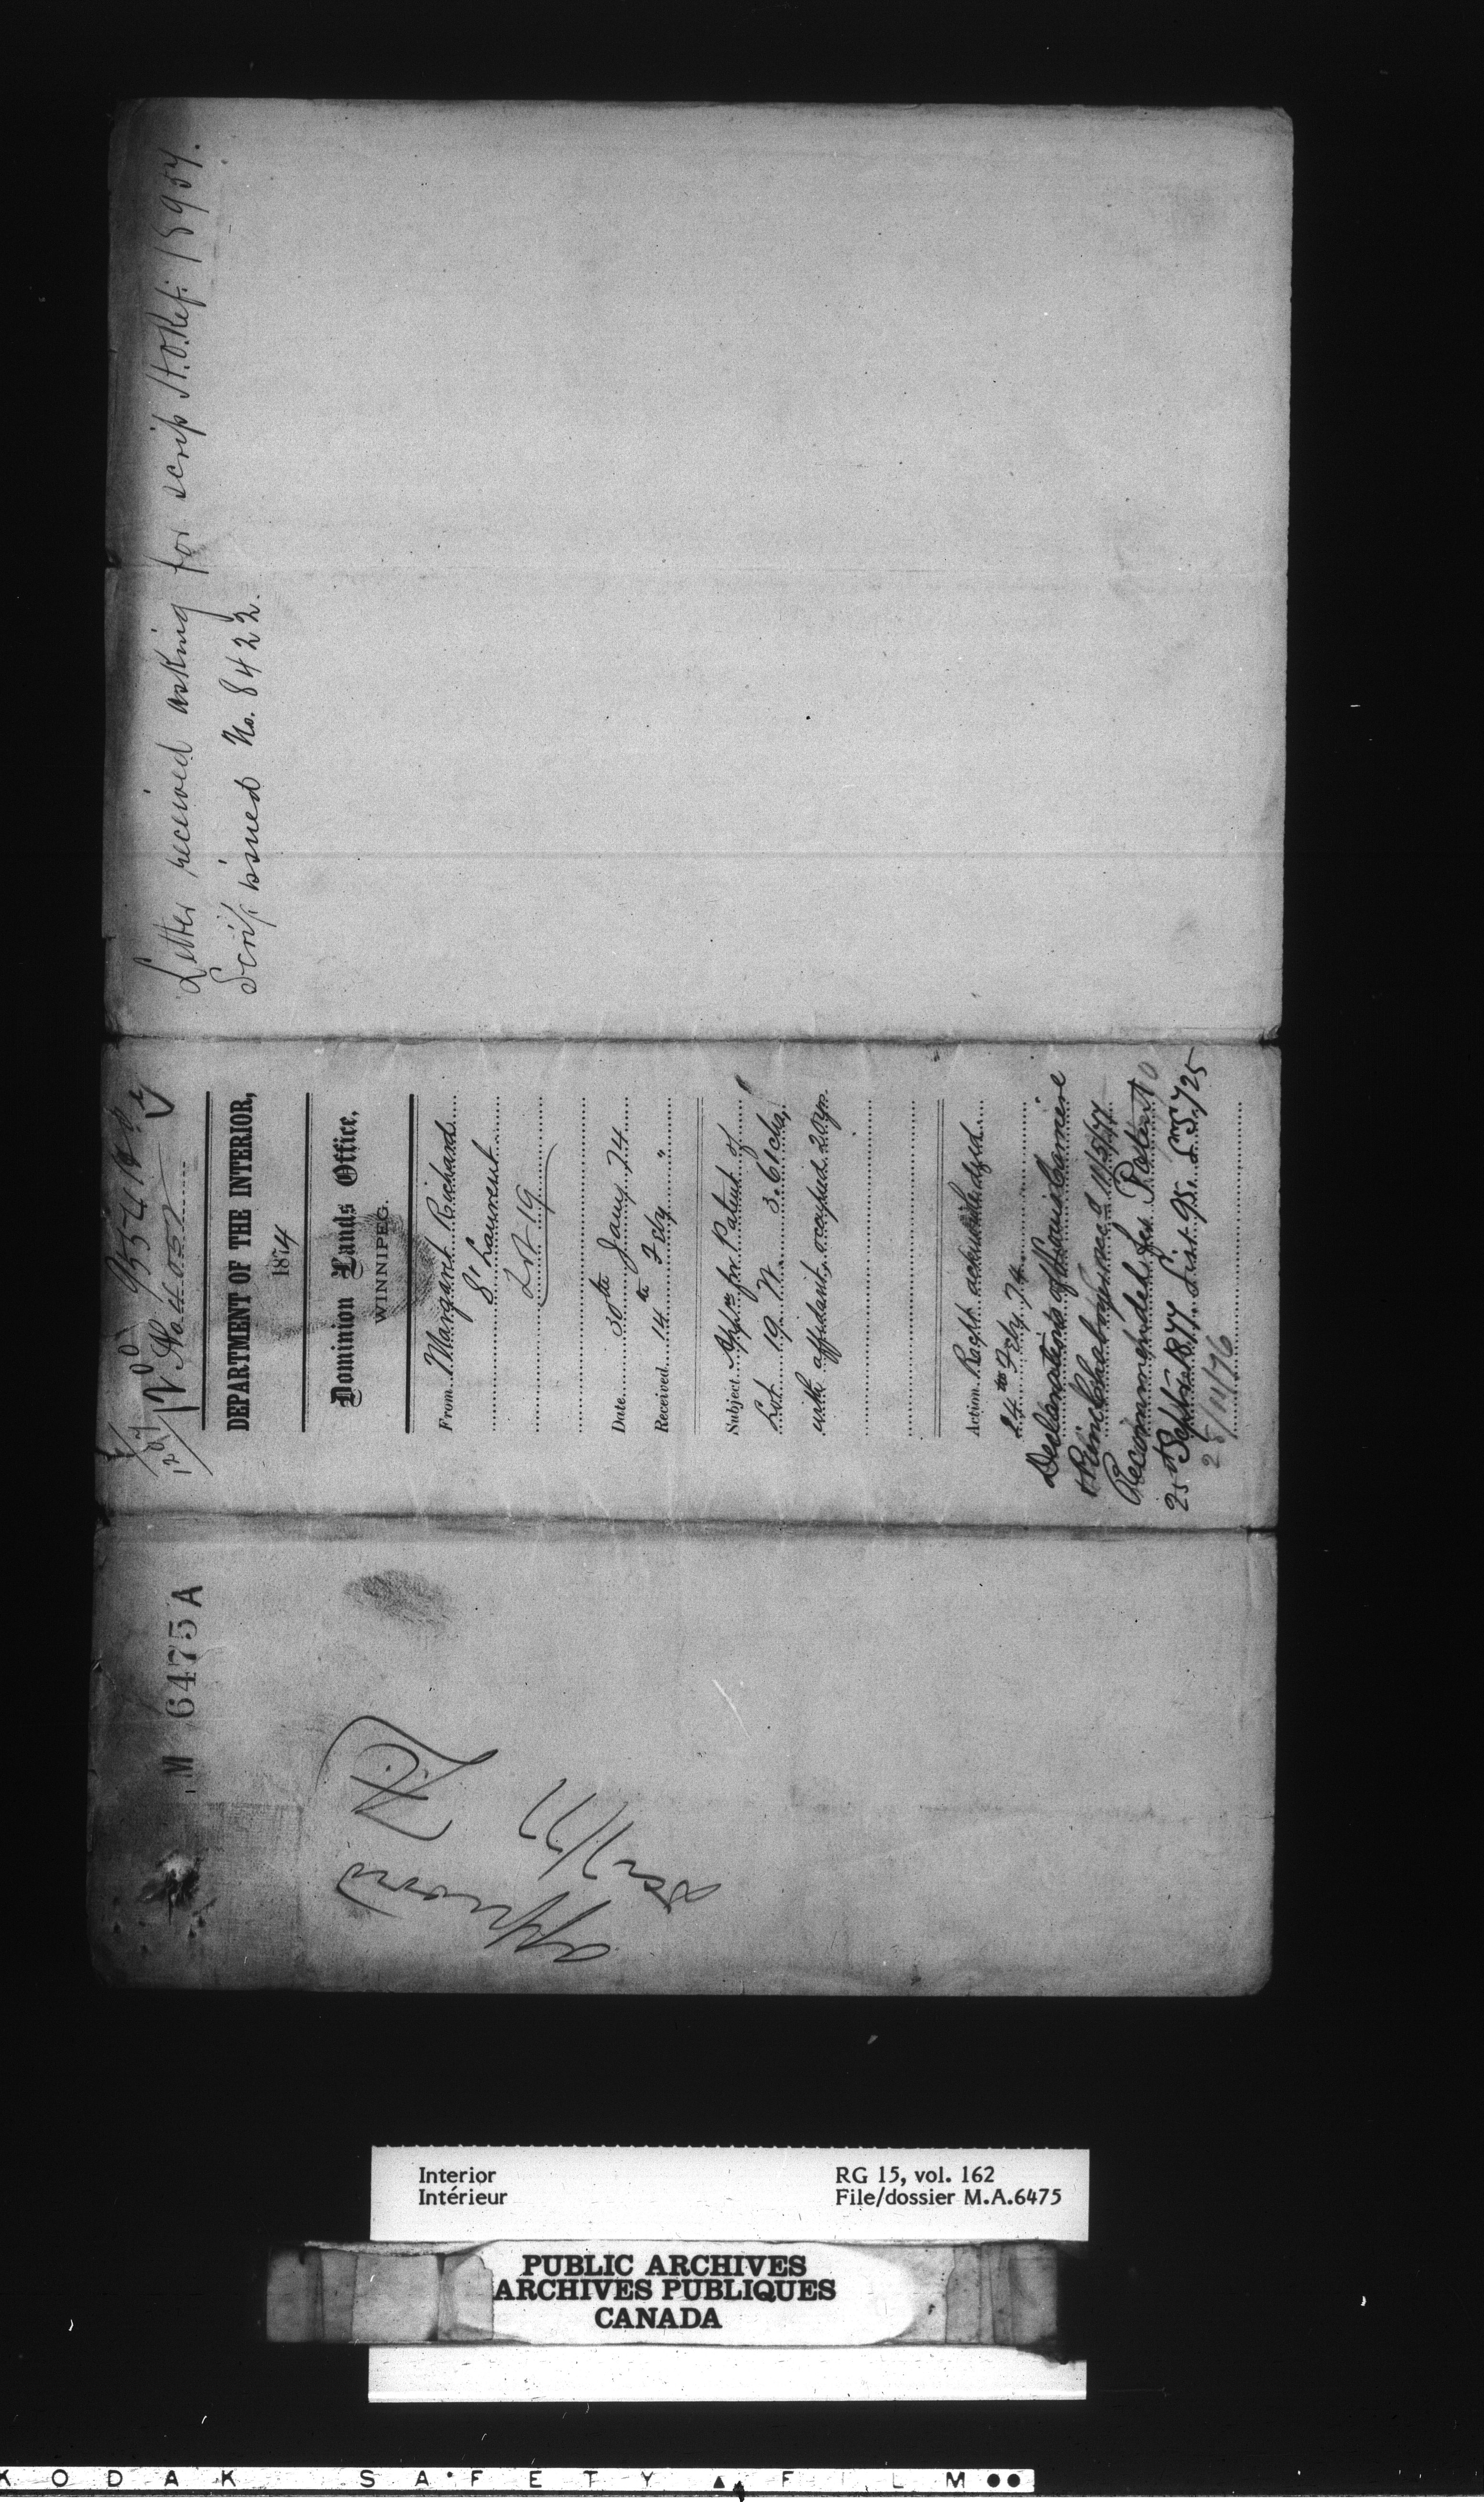 Letter received asking for scrip H.O. Ref: 18957.
Scrip issued No. 8422.
No. 4002
DEPARTMENT OF THE INTERIOR,
1874
Dominion Lands Office,
WINNIPEG.
From Margaret Richard
St Laurent
Lot 19
Date 30th Jany 74
Received 14th Feby "
Subject Appln for Patent of
Lot 19 N 3.61 chs,
with affidavit, occupied 20 yrs.
Action Recpt. acknowledged
24th Feby 74
Declarations of
11/5/77
Recommended for Patent
25th Septr. 1877. List 95.
M 6475 A
Approved
77
Interior
Intérieur
RG 15, vol. 162
File/dossier M.A.6475
PUBLIC ARCHIVES
ARCHIVES PUBLIQUES
CANADA
KODAK SAFETY FILM